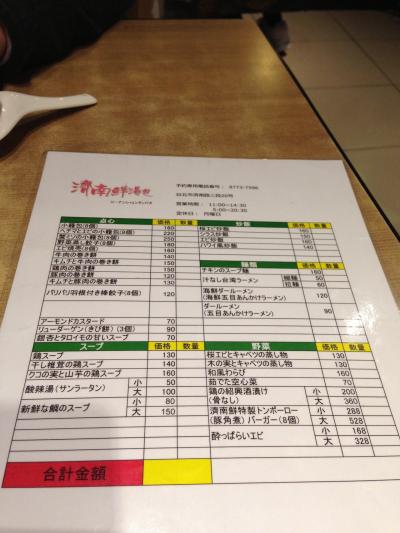 濟南鮮湯包
ジーナンシェンタンパオ
予約専用電話番号： 8773-7596
台北市濟南路三段20号
営業時間： 11:00~14:30
5:00~20:30
定休日： 月曜日
点心 価格 数量
小籠包(8個) 160
ヘチマとエビの小籠包(8個)
160
キムチと牛肉の巻き餅
鶏肉の巻き餅
豚肉の巻き餅 120
キムチと豚肉の巻き餅 130
パリパリ羽根付き棒餃子(8個) 120
アーモンドカスタード 70
リューダーゲン(きび餅) (3個) 90
銀杏とタロイモの甘いスープ 70
炒飯 価格 数量
桜エビ炒飯 160
シラス炒飯
エビ炒飯 160
ハワイ風炒飯 140
麺類 価格 数量
チキンのスープ麺 150
汁なし台湾ラーメン 細麺 50
拉麺 60
海鮮ダールーメン
(海鮮五目あんかけラーメン) 120
ダールーメン
(五目あんかけラーメン) 90
スープ 価格 数量
鶏スープ 130
干し椎茸の鶏スープ 140
クコの実と山芋の鶏スープ 160
酸辣湯(サンラータン) 小 50
大 100
新鮮な鯛のスープ 小 80
大 150
野菜 価格 数量
桜エビとキャベツの蒸し物 130
木の実とキャベツの蒸し物 130
和風わらび 160
茹でた空心菜 70
鶏の紹興酒漬け 小 200
(骨なし) 大 360
濟南鮮特製トンポーロー 小 288
(豚角煮) バーガー(8個) 大 528
酔っぱらいエビ 小 168
大 328
合計金額